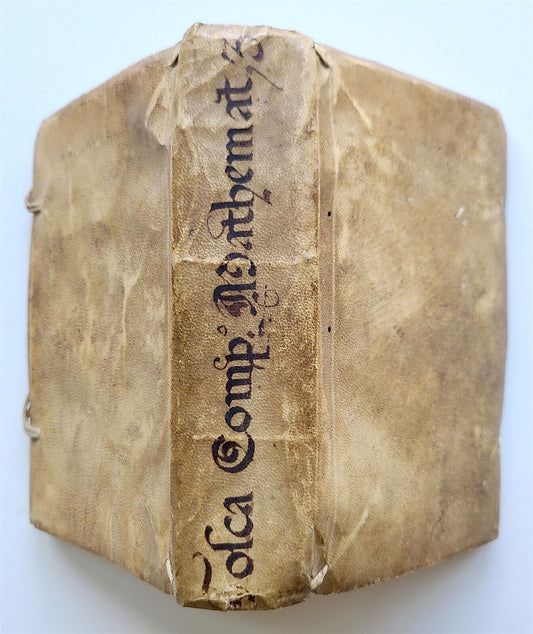 Toſca Comp.º Mathemat, 3